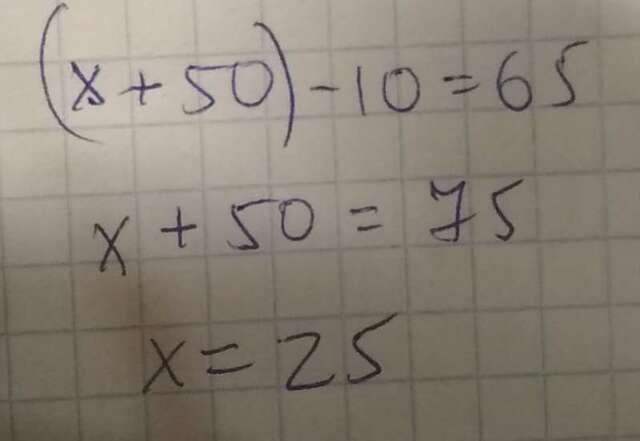 (x + 50) - 10 = 65
x + 50 = 75
x = 25